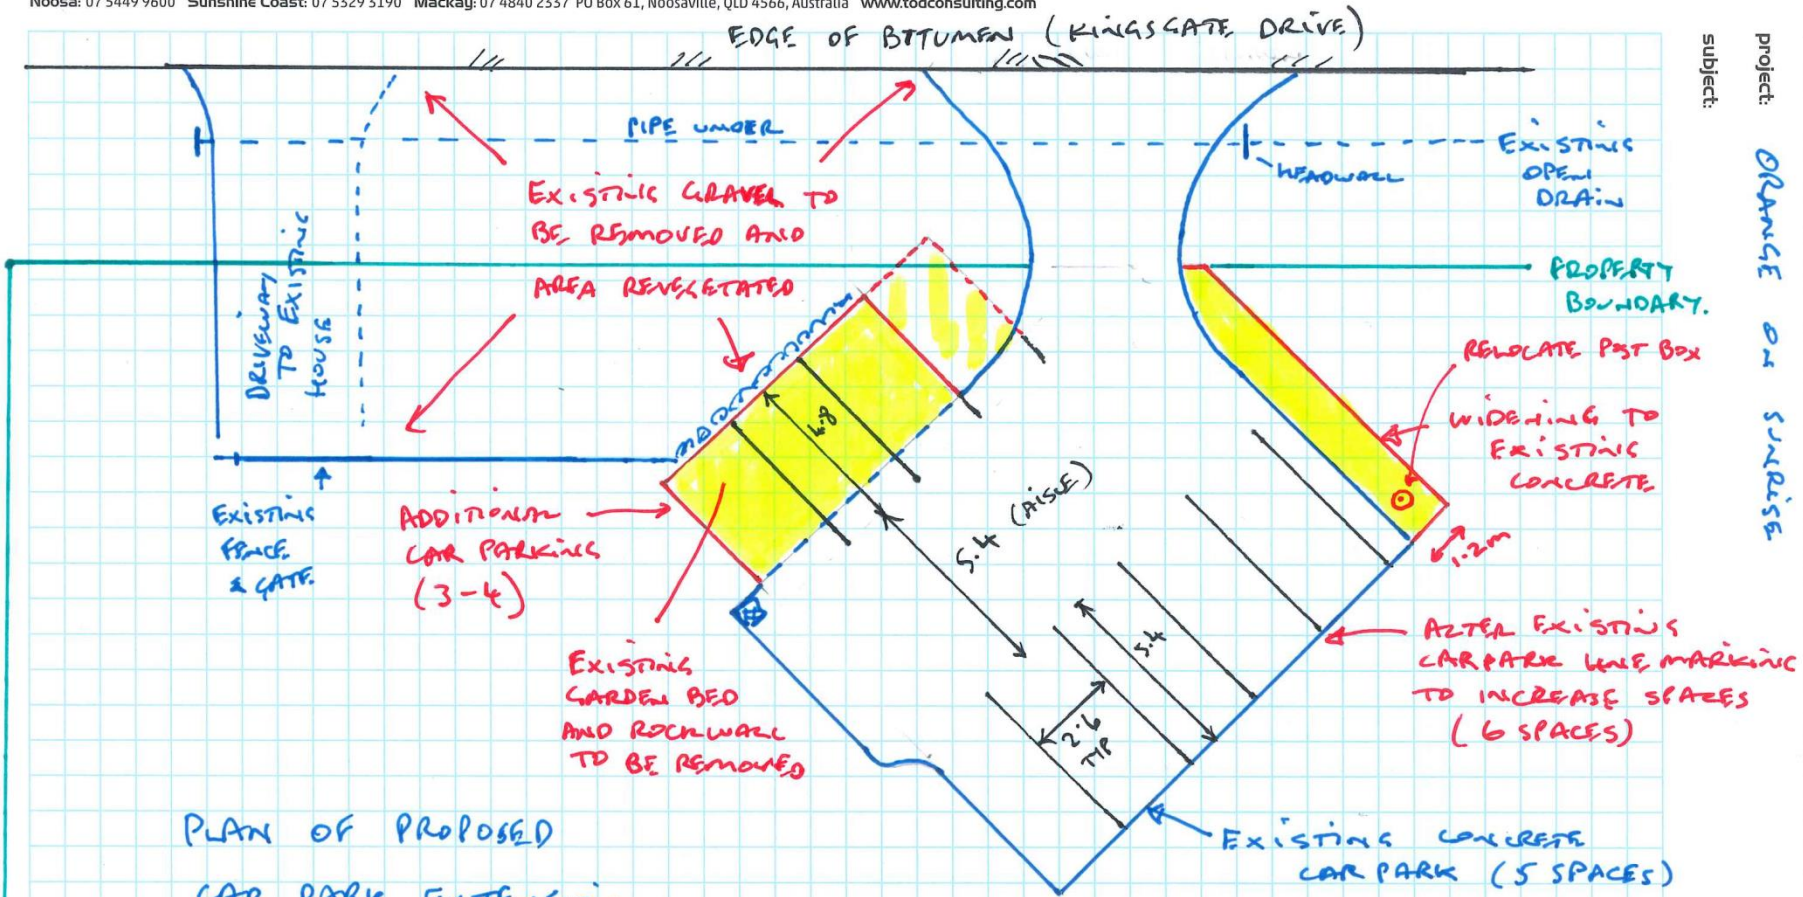 Noosa: 07 5449 9600 Sunshine Coast: 07 5329 3190 Mackay: 07 4840 2337 PO Box 61, Noosaville, QLD 4566, Australia www.todconsulting.com
project: ORANGE ON SUNRISE
subject:
EDGE OF BITUMEN (KINGSGATE DRIVE)
PIPE UNDER
EXISTING
OPEN
DRAIN
HEADWALL
EXISTING GRAVEL TO
BE REMOVED AND
AREA REVEGETATED
DRIVEWAY
TO EXISTING
HOUSE
PROPERTY
BOUNDARY.
RELOCATE POST BOX
WIDENING TO
EXISTING
CONCRETE
1.2m
4.8
5.4 (AISLE)
EXISTING
FENCE
& GATE.
ADDITIONAL
CAR PARKING
(3-4)
EXISTING
GARDEN BED
AND ROCKWALL
TO BE REMOVED
5.4
2.6
TYP
ALTER EXISTING
CARPARK LINE MARKING
TO INCREASE SPACES
(6 SPACES)
EXISTING CONCRETE
CAR PARK (5 SPACES)
PLAN OF PROPOSED
CAR PARK